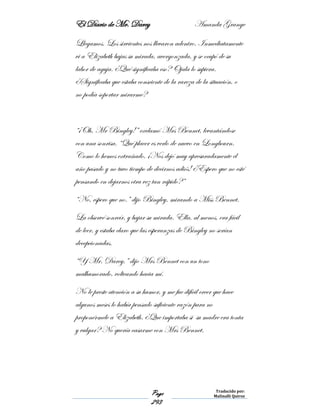 El Diario de Mr. Darcy Amanda Grange
Llegamos. Los sirvientes nos llevaron adentro. Inmediatamente
vi a Elizabeth bajar su mirada, avergonzada, y se ocupó de su
labor de aguja. ¿Qué significaba eso? Ojala lo supiera.
¿Significaba que estaba consciente de la rareza de la situación, o
no podía soportar mirarme?
“¡Oh, Mr Bingley!” exclamó Mrs Bennet, levantándose
con una sonrisa. “Que placer es verlo de nuevo en Longbourn.
Como lo hemos extrañado. ¡Nos dejo muy apresuradamente el
año pasado y no tuvo tiempo de decirnos adiós! ¿Espero que no esté
pensando en dejarnos otra vez tan rápido?”
“No, espero que no,” dijo Bingley, mirando a Miss Bennet.
La observé sonreír, y bajar su mirada. Ella, al menos, era fácil
de leer, y estaba claro que las esperanzas de Bingley no serían
decepcionadas.
“Y Mr. Darcy,” dijo Mrs Bennet con un tono
malhumorado, volteando hacia mí.
No le preste atención a su humor, y me fue difícil creer que hace
algunos meses lo había pensado suficiente razón para no
proponérmele a Elizabeth. ¿Que importaba si su madre era tonta
y vulgar? No quería casarme con Mrs Bennet.
Page
293
Traducido por:
Malinalli Quiroz